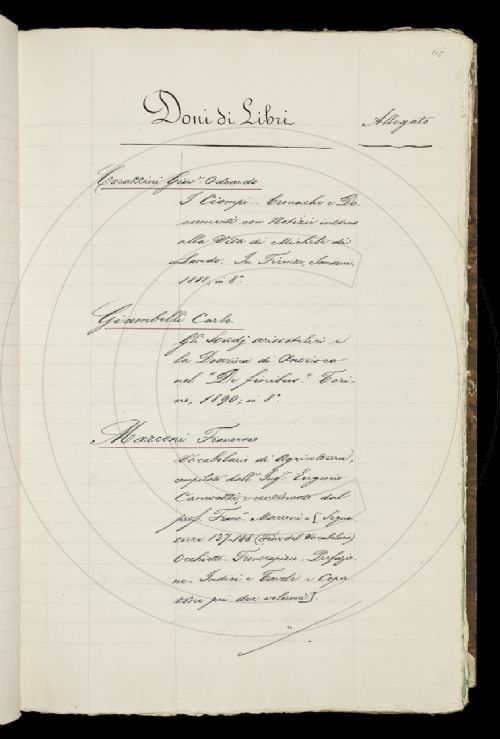 115
Doni di Libri
Allegato
Corazzini Giov. Odoardo
I Ciompi - Cronache e Do
cumenti con Notizie intorno
alla Vita di Michele di
Lando. In Firenze, Sansoni,
1888, in 8°
Giambelli Carlo
Gli Studj aristotelici e
la Dottrina di Antioco
nel "De finibus." Tori-
no, 1890, in 8°
Marconi Francesco
Vocabolario di Agricoltura,
compilato dall' Ing. Eugenio
Canevazzi, e continuato dal
prof. Franc. Marconi - [Segna
ture 137-148 (Fine del Vocabolario)
Occhietto - Frontespizio - Prefazio
ne - Indici e Tavole e Coper
tine pei due volumi].